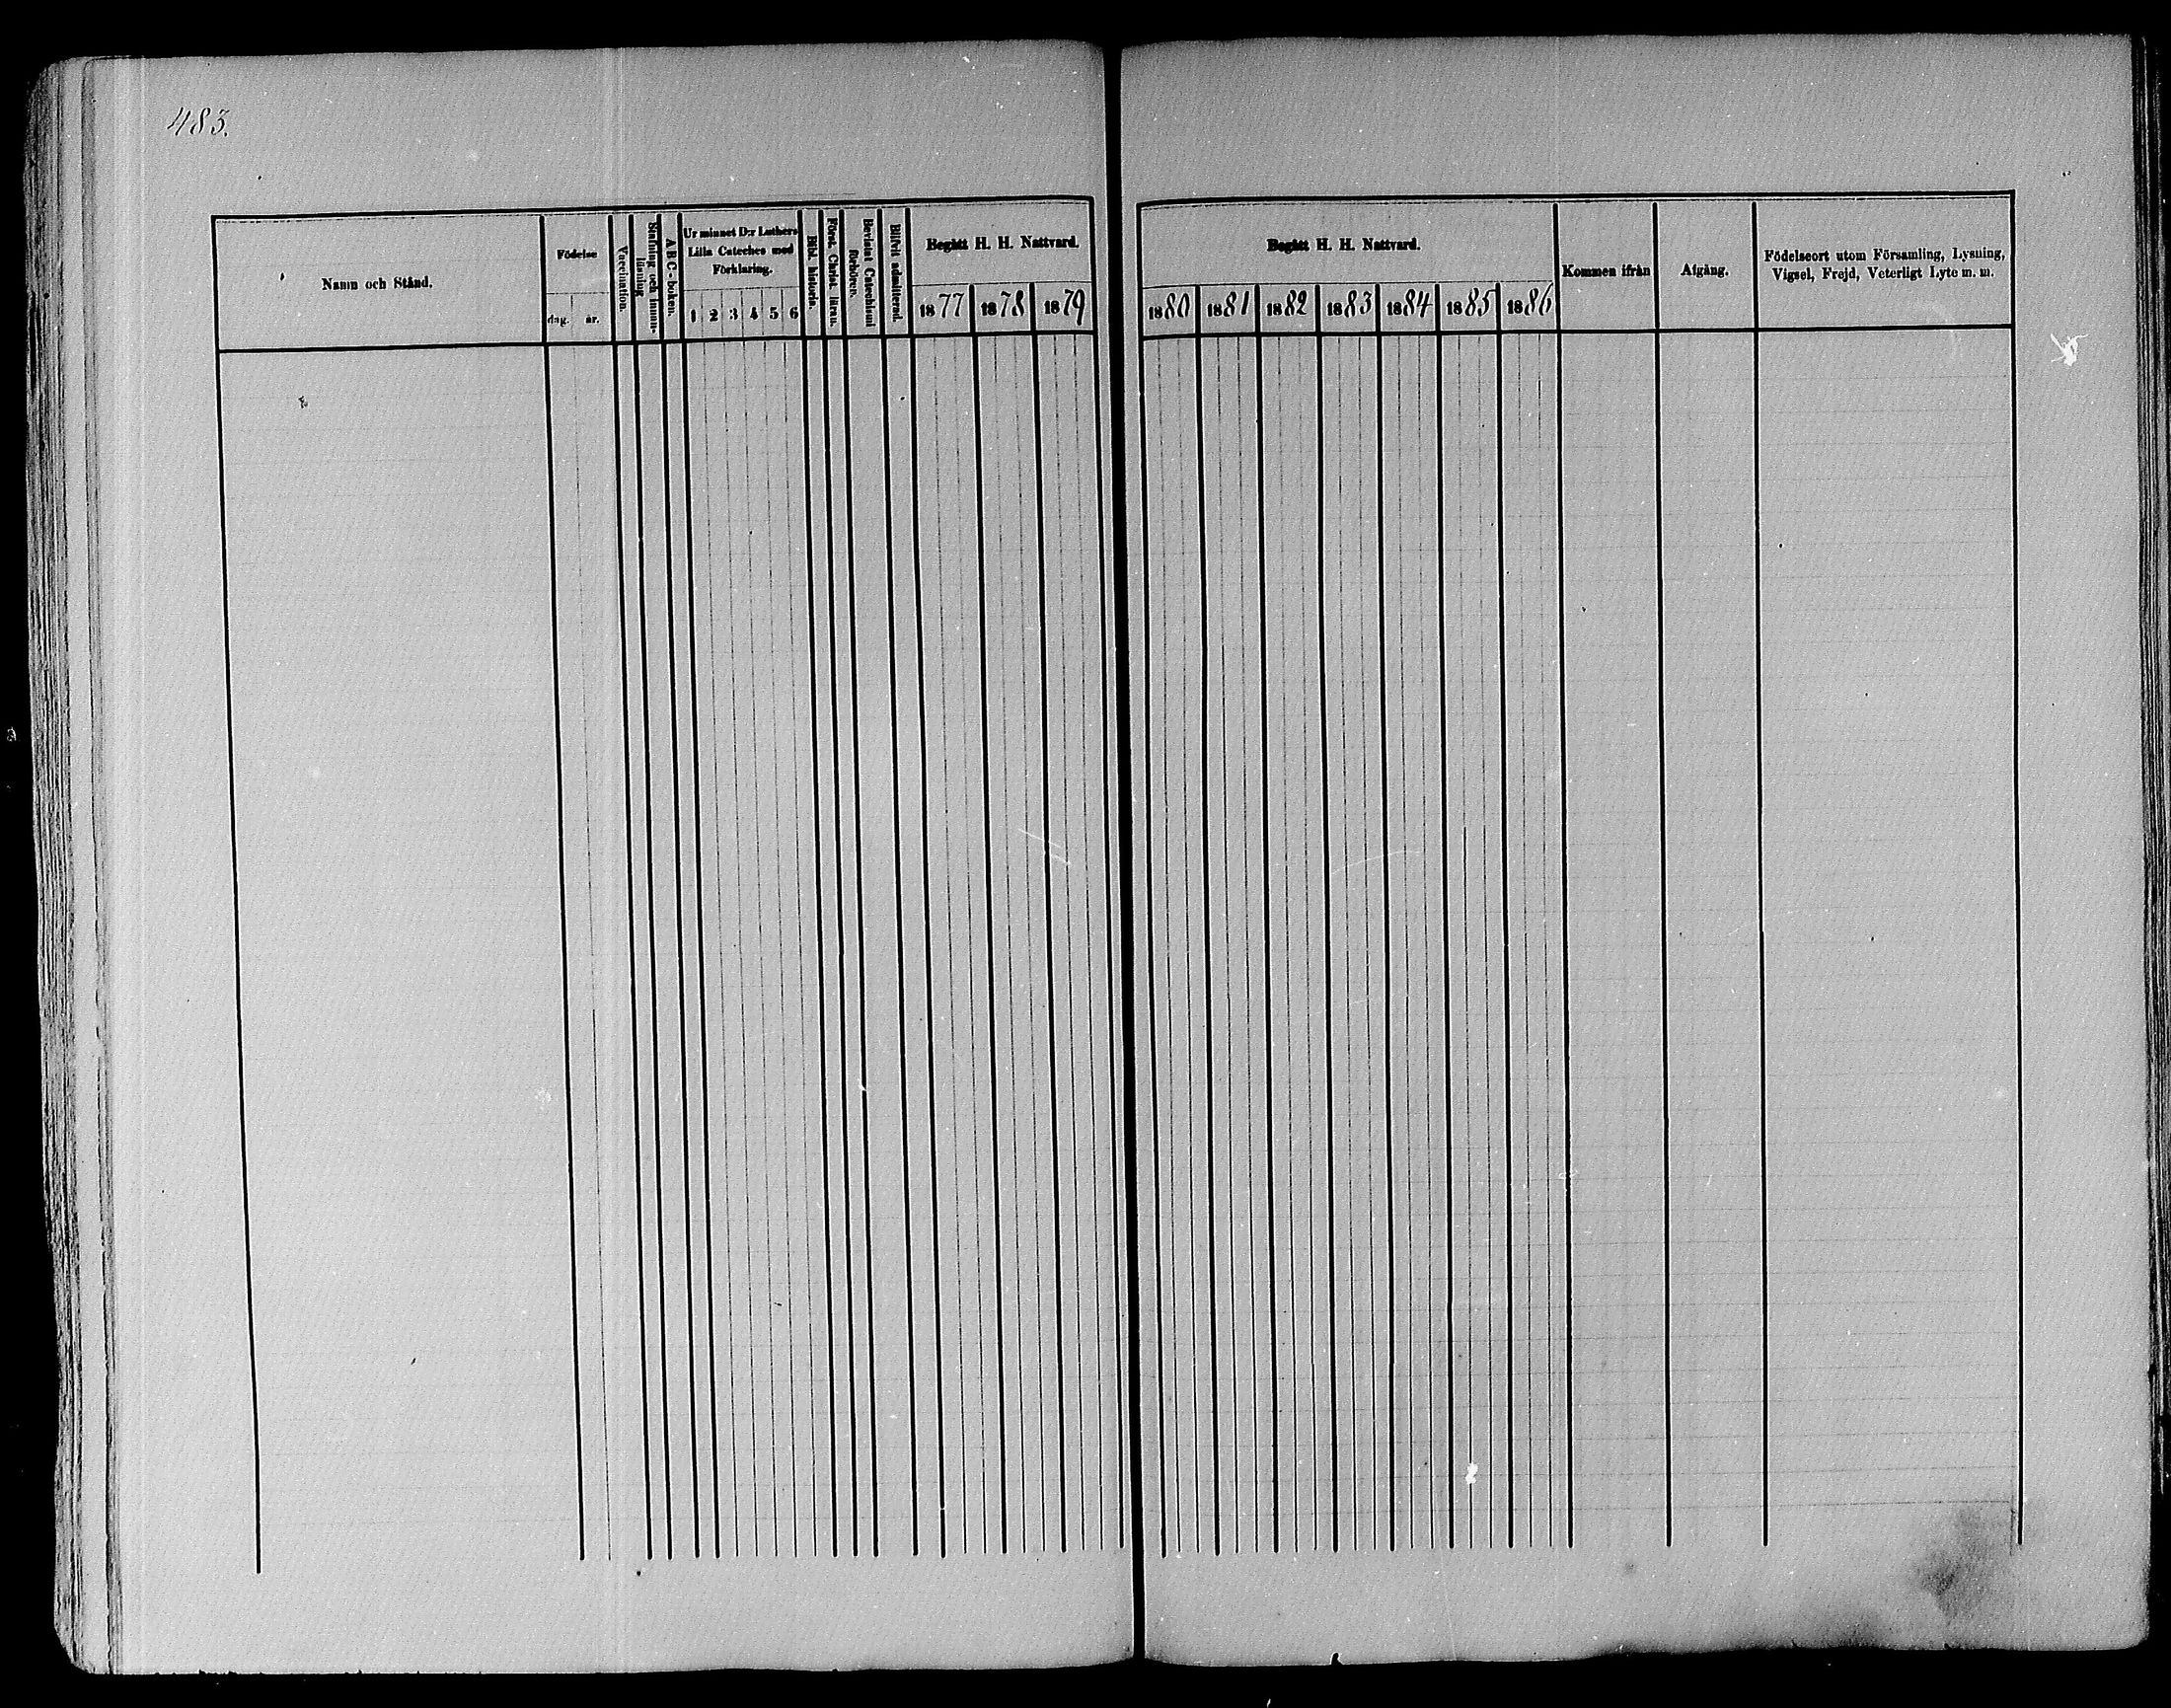 483.
Namn och Stånd.
Födelse
dag. år.
Vaccination.
Stafning och innan-
läsning
ABC-boken.
Ur minnet D:r Luthers
Lilla Cateches med
Förklaring.
1 2 3 4 5 6
Bibl. historia.
Först. Christ. läran.
Bevistat Catechismi
förhören.
Blifvit admitterad.
Begått H. H. Nattvard.
1877 1878 1879
Begått H. H. Nattvard.
1880 1881 1882 1883 1884 1885 1886
Kommen ifrån
Afgång.
Födelseort utom Församling, Lysning,
Vigsel, Frejd, Veterligt Lyte m. m.